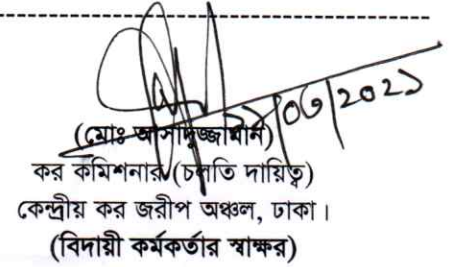 (মোঃ আসাদুজ্জামান)
কর কমিশনার (চলতি দায়িত্ব)
কেন্দ্রীয় কর জরীপ অঞ্চল, ঢাকা।
(বিদায়ী কর্মকর্তার স্বাক্ষর)